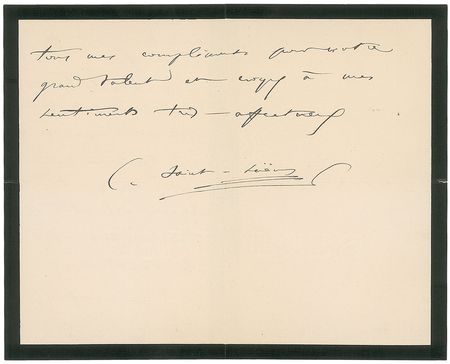 tous mes compliments pour votre
grand talent et croyez à mes
sentiments très affectueux
C. Saint-Saëns